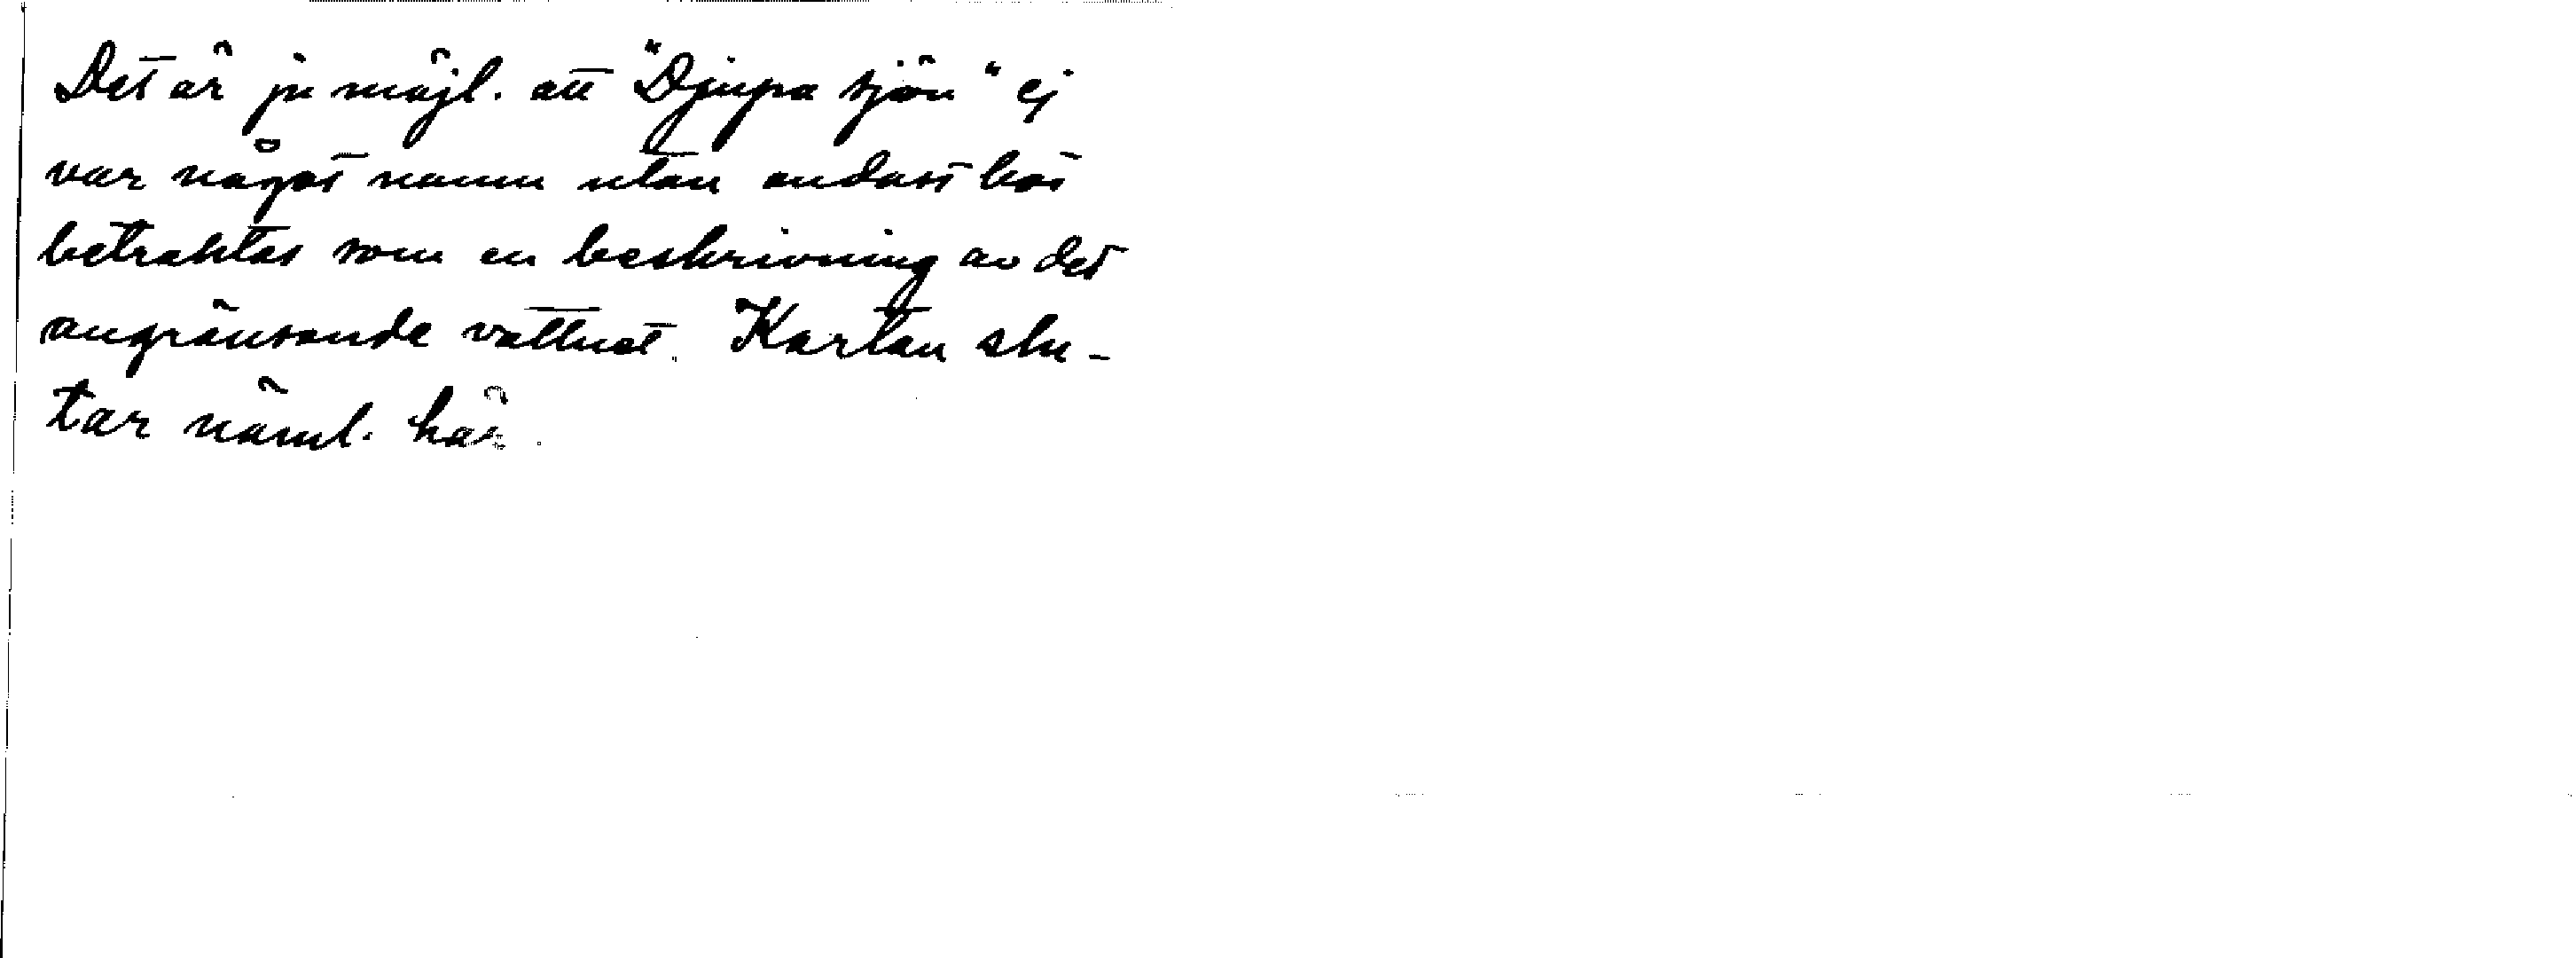 Det är ju möjl. att "Djupa sjön" ej
var något namn utan endast bör
betraktas som en beskrivning av det
angränsande vattnet. Kartan slu-
tar näml. här.